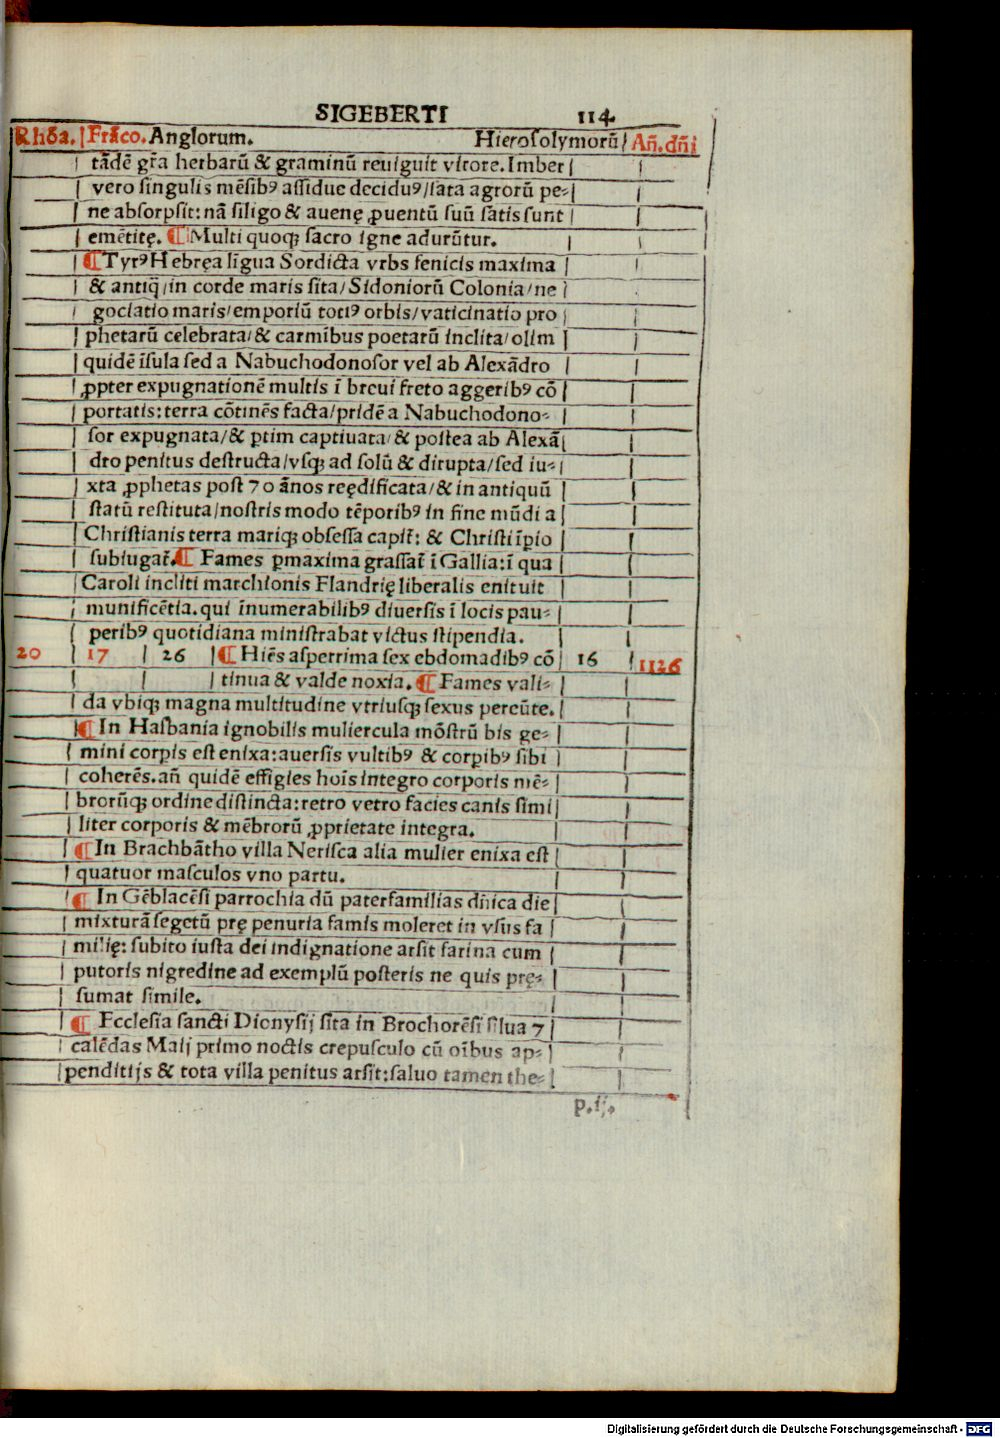 SIGEBERTI 114.
Rhōa. Frāco. Anglorum. Hierosolymorū Añ. dñi
tādē gr̄a herbarū & graminū reuiguit virore. Imber
vero singulis mēsibꝰ assidue deciduꝰ/sata agrorū pe-
ne absorpsit: nā siligo & auenę ꝓuentū suū satis sunt
emētitę. ¶ Multi quoqꝫ sacro igne adurūtur.
¶ Tyrꝰ Hebręa līgua Sordicta vrbs fenicis maxima
& antiq̄/in corde maris sita/Sidoniorū Colonia/ne
gociatio maris/emporiū totiꝰ orbis/vaticinatio pro
phetarū celebrata/& carmībus poetarū inclita/olim
quidē īsula sed a Nabuchodonosor vel ab Alexādro
ꝓpter expugnationē multis ī breui freto aggeribꝰ cō
portatis: terra cōtinēs facta/pridē a Nabuchodono-
sor expugnata/& ꝑtim captiuata/& postea ab Alexā
dro penitus destructa/vsqꝫ ad solū & dirupta/sed iu-
xta ꝓphetas post 70 ānos reędificata/& in antiquū
statū restituta/nostris modo tēporibꝰ in fine mūdi a
Christianis terra mariqꝫ obsessa capit̄: & Christi īpio
subiugat̄. ¶ Fames ꝑmaxima grassat̄ ī Gallia: ī qua
Caroli incliti marchionis Flandrię liberalis enituit
munificētia. qui īnumerabilibꝰ diuersis ī locis pau-
peribꝰ quotidiana ministrabat victus stipendia.
20 17 26 ¶ Hiēs asperrima sex ebdomadibꝰ cō 16 1126
tinua & valde noxia. ¶ Fames vali-
da vbiqꝫ magna multitudine vtriusqꝫ sexus pereūte.
¶ In Hasbania ignobilis muliercula mōstrū bis ge-
mini corꝑis est enixa: auersis vultibꝰ & corꝑibꝰ sibi
coherēs. añ quidē effigies hoīs integro corporis mē-
brorūqꝫ ordine distincta: retro vetro facies canis simi
liter corporis & mēbrorū ꝓprietate integra.
¶ In Brachbātho villa Nerisca alia mulier enixa est
quatuor masculos vno partu.
¶ In Gēblacēsi parrochia dū paterfamilias dñica die
mixturā segetū prę penuria famis moleret in vsus fa
milię: subito iusta dei indignatione arsit farina cum
putoris nigredine ad exemplū posteris ne quis prę-
sumat simile.
¶ Ecclesia sancti Dionysij sita in Brochorēsi silua 7
calēdas Maij primo noctis crepusculo cū oībus ap-
penditijs & tota villa penitus arsit: saluo tamen the-
p. ij.
Digitalisierung gefördert durch die Deutsche Forschungsgemeinschaft - DFG